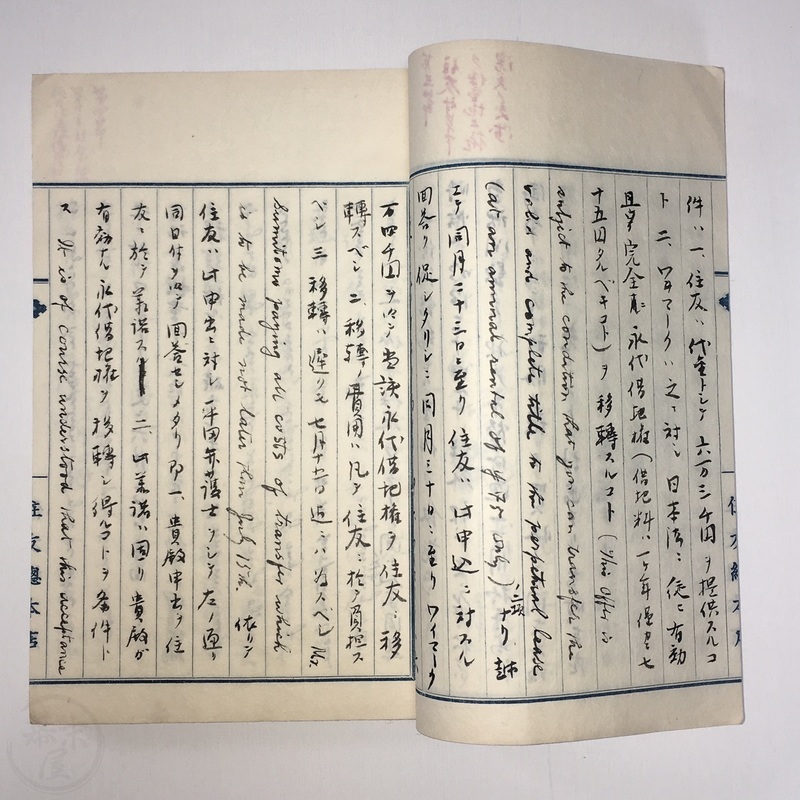 件ハ一、住友ハ代金トシテ六万三千円ヲ提供スルコ
ト二、ワイマークハ之ニ対シ日本法ニ従ヒ有効
且ツ完全ナル永代借地権(借地料ハ一ケ年僅カ七
十五円タルベキコト)ヲ移轉スルコト (This offer is
subject to the condition that you can transfer the
valid and complete title to the perpetual lease
(at an annual rental of ¥75 only)
ニテ同月二十三日ニ至リ住友ハ此申込ニ対スル
回答ヲ促シタリシニ同月三十日ニ至リワイマーク
万四千円ヲ以テ当該永代借地権ヲ住友ニ移
轉スベシ二、移轉ノ費用ハ凡テ住友ニ於テ負担ス
ベシ三移轉ハ遅クモ七月十五日迄ニハ為スベシ Mr.
Sumitomo paying all costs of transfer which
is to be made not later than July 15th. 依リテ
住友ハ此申出ニ対シ平田弁護士ヲシテ左ノ通リ
同日付ヲ以テ回答セシメタリ即一、貴殿申出ヲ住
友ニ於テ承諾ス 二、此承諾ハ固ヨリ貴殿ガ
有効ナル永代借地権ヲ移轉シ得ルコトヲ条件ト
ス It is of course understood that this acceptance
住友總本店